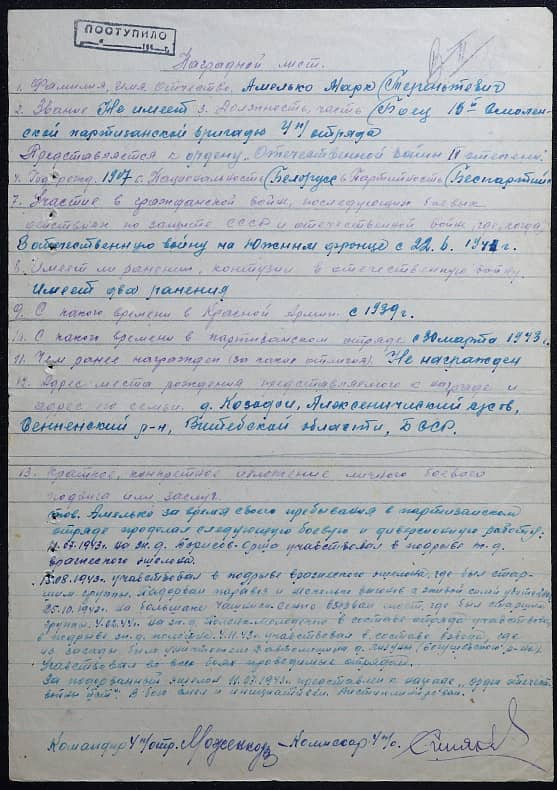 ПОСТУПИЛО
Наградной лист.
1. Фамилия, имя отчество. Амелько Марк
2. Звание Не имеет 3. Должность, часть Боец 16й Смолен-
ской партизанской бригады 4 п/отряда
Представляется к ордену „Отечественной войны II степени“
4. Год рожд. 1907 г. Национальность Белорус в Партийность Беспартийн
7. Участие в гражданской войн, последующих боевых
действиях по защите СССР и отечественной войн, где, когда
В отечественную войну на Южном фронце с 22.6. 1941 г.
8. Имеет ли ранения, контузии в отечественную войну.
Имеет два ранения
9. С какого времени в Красной Армии. с 1939 г.
С какого времени в партизанском отряде с 30 марта 1943 г.
11. Чем ранее награжден (за какие отличия). Не награжден
12. Адрес места рождения представляемого к награде и
адрес его семьи. д. Козодои,
Сенненский р-н, Витебской области, БССР.
13. Краткое, конкретное изложение личного боевого
подвига или заслуг.
тов. Амелько за время своего пребывания в партизанском
отряде проделал следующую боевую и диверсионную работу:
11.07.1943г. на ж.д. Борисов-Орша участвовал в подрыве ж.д.
вражеского эшелона.
13.08.1943г. участвовал в подрыве вражеского эшелона, где был стар-
шим группы, подорван паравоз и несколько вагонов с живой силой
25.10.1943г. на большаке Чашники-Сенно взорван мост, где был старшим
группы. на ж.д. в составе отряда участвовал
в подрыве ж.д. полотна. 4.11.43г. участвовал в составе взвода, где
из засады было уничтожено 2 автомашины д.
Участвовал во всех боях проводимых отрядом.
За подорванный эшелон 11.07.1943г. представлялся к награде „орден отечест.
войны II ст“. В бою смел и инициативен. дисциплинирован.
Командир 4 п/отр. Комиссар 4 п/о.